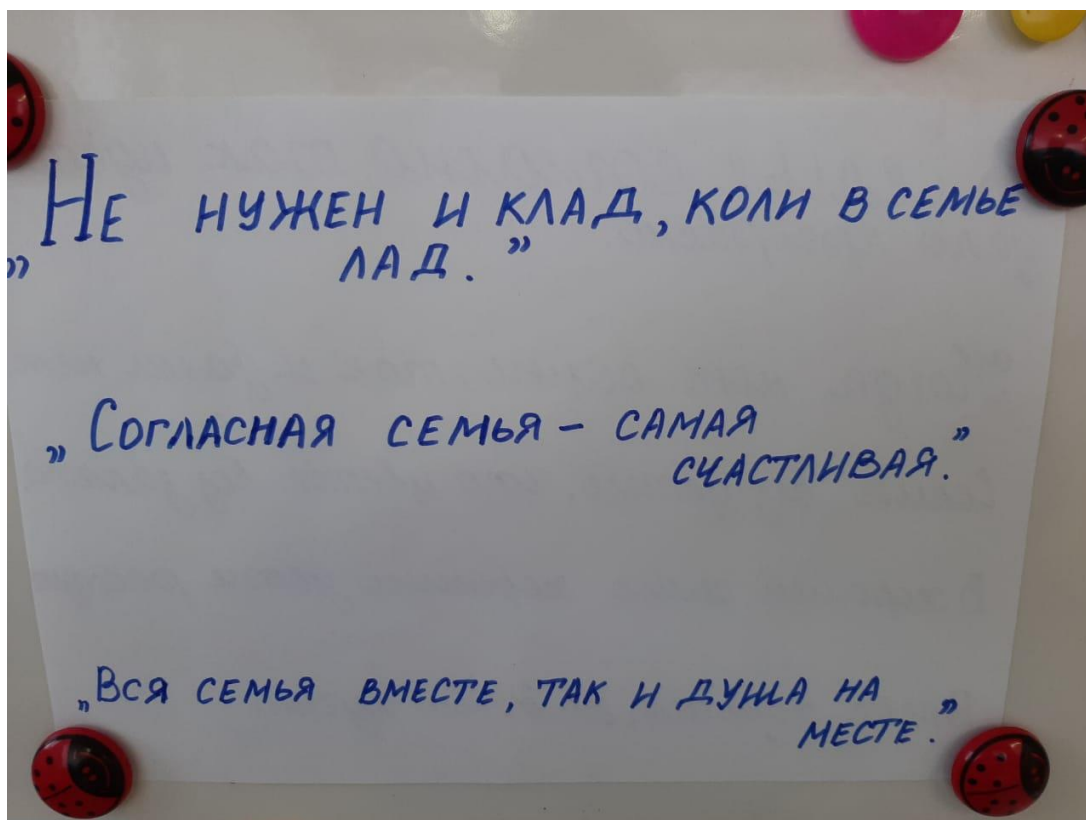 „Не нужен и клад, коли в семье
лад.”
„Согласная семья – самая
счастливая.”
„Вся семья вместе, так и душа на
месте.”